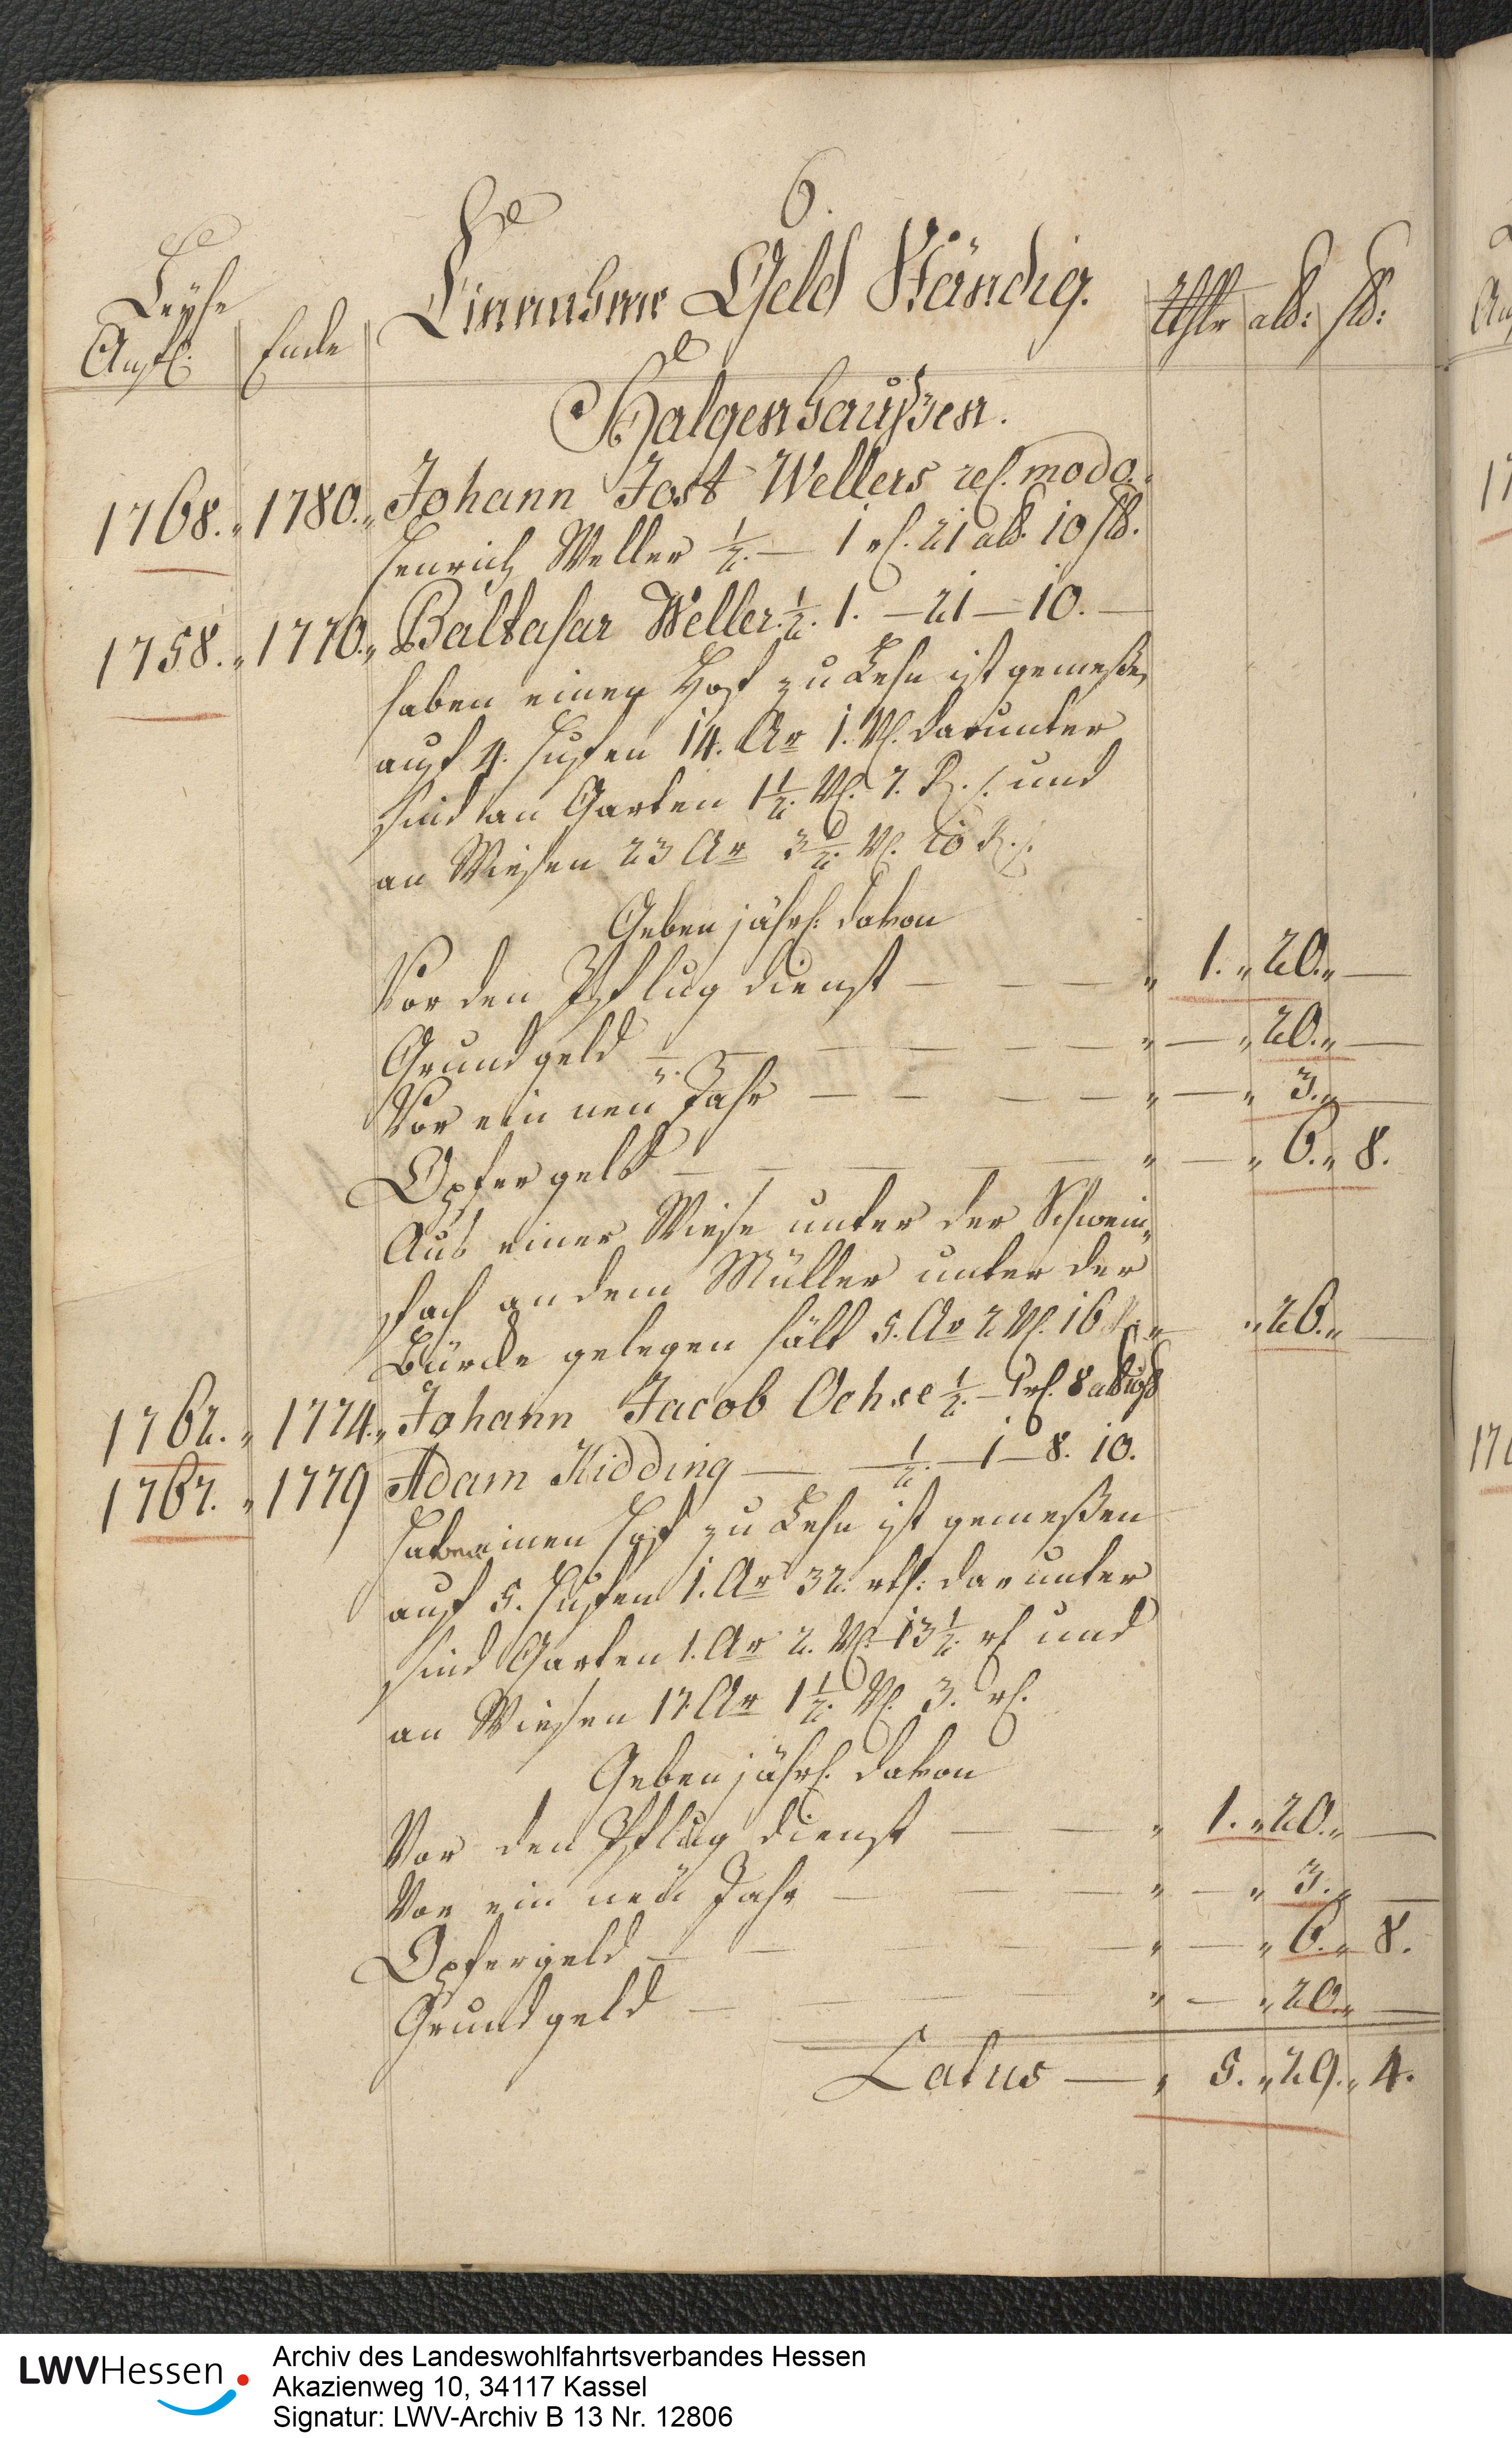 6.
Leyhe
Anf. Ende Einnahme Geld Ständig. Rthlr alb: hlr:
Halgenhaußen.
1768. „ 1780. „ Johann Jost Wellers rel. modo
Henrich Weller ½. — 1 rt. 21 alb. 10 hlr.
1758. „ 1770. „ Baltasar Weller. ½. 1. — 21 — 10. —
haben einen Hof zu Lehn ist gemeßen
auf 4. Hufen 14. Ar 1. Vl. darunter
sind an Garten 1½. Vl. 7. R. und
an Wiesen 23 Ar 3½. Vl. 10 R.
Geben jährl: davon
Vor den Pflug dienst — — — „ 1. „ 20. „ —
Grund geld — — — — — „ — „ 20. „ —
Vor ein neü Jahr — — — — „ — „ 3. „ —
Opfer geld — — — — — „ — „ 6. „ 8.
Aus einer Wiese unter der Schwein„
an dem Müller unter der
gelegen hält 5. Ar 2 Vl. 16 „ „ 26. „ —
1762. „ 1774. „ Johann Jacob Ochse ½. — 1 rt. 8 alb 10 hlr
1767. „ 1779 Adam Kidding — ½. — 1 — 8. 10.
haben einen Hof zu Lehn ist gemeßen
auf 5. Hufen 1. Ar 32. rth: darunter
sind Garten 1. Ar 2. Vl. 13½. rt und
an Wiesen 17. Ar 1½. Vl. 3. rt.
Geben jährl. davon
Vor den Pflug dienst — — „ 1. „ 20. „ —
Vor ein neü Jahr — — — „ — „ 3. „ —
Opfergeld — — — — — „ — „ 6. „ 8.
Grund geld — — — — — „ — „ 20. „ —
Latus — „ 5. „ 29. „ 4.
LWVHessen
Archiv des Landeswohlfahrtsverbandes Hessen
Akazienweg 10, 34117 Kassel
Signatur: LWV-Archiv B 13 Nr. 12806